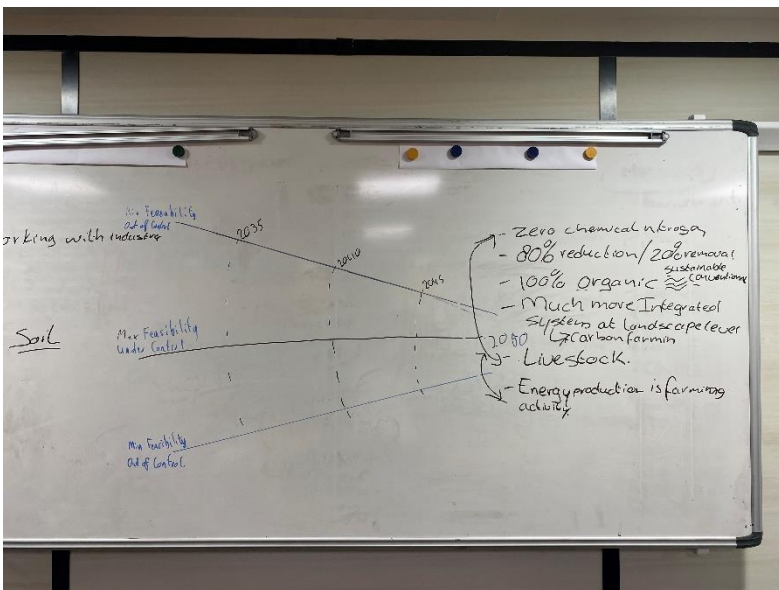 Min Feasibility
Out of Control
working with industry
2035
2040
2045
Soil
Max Feasibility
Under Control
2050
Min Feasibility
Out of Control.
- Zero chemical nitrogen
- 80% reduction/20% removal
- 100% Organic
sustainable
conventional
- Much more Integrated
System at landscape level
↳ Carbon farmin
- Livestock.
- Energy production is farming
activity